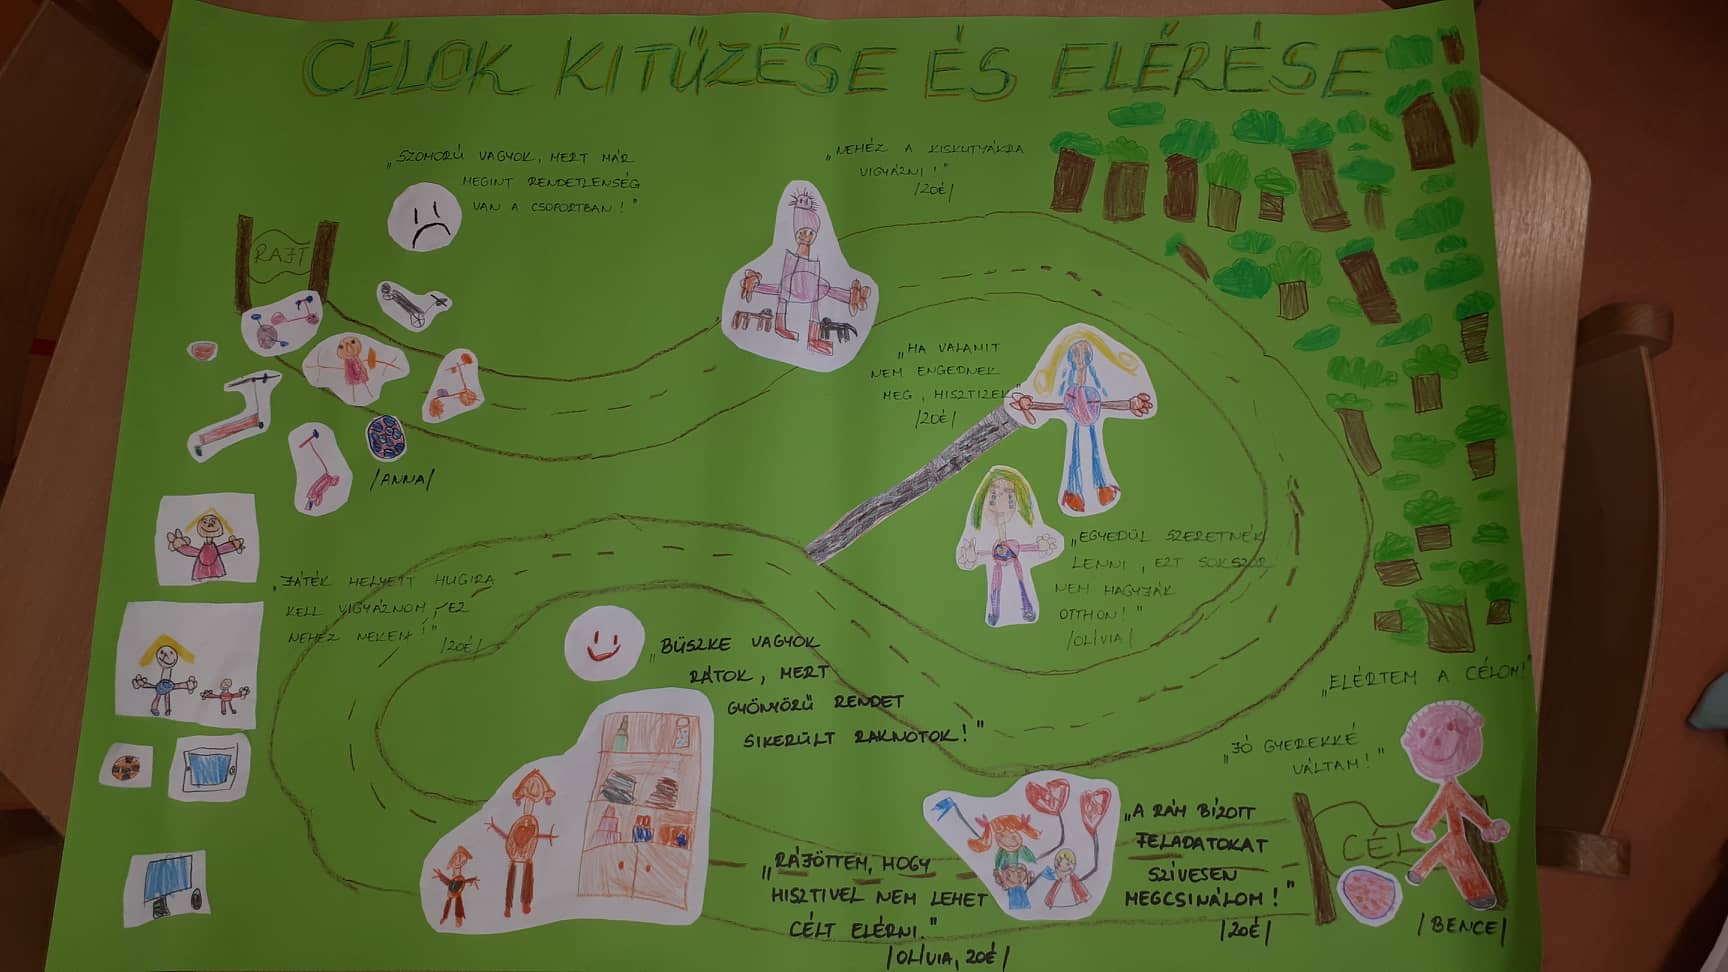 CÉLOK KITŰZÉSE ÉS ELÉRÉSE
„SZOMORÚ VAGYOK, MERT MÁR
MEGINT RENDETLENSÉG
VAN A CSOPORTBAN!"
„NEHÉZ A KISKUTYÁKRA
VIGYÁZNI!"
/ZOÉ/
RAJT
„HA VALAMIT
NEM ENGEDNEK
MEG, HISZTIZEK"
/ZOÉ/
/ANNA/
„EGYEDÜL SZERETNÉK
LENNI, EZT SOKSZOR
NEM HAGYJÁK
OTTHON!"
/OLÍVIA/
„JÁTÉK HELYETT HUGIRA
KELL VIGYÁZNOM, EZ
NEHÉZ NEKEM!"
/ZOÉ/
„BÜSZKE VAGYOK
RÁTOK, MERT
GYÖNYÖRŰ RENDET
SIKERÜLT RAKNOTOK!"
„ELÉRTEM A CÉLOM!"
„JÓ GYEREKKÉ
VÁLTAM!"
„RÁJÖTTEM, HOGY
HISZTIVEL NEM LEHET
CÉLT ELÉRNI."
/OLÍVIA, ZOÉ/
„A RÁM BÍZOTT
FELADATOKAT
SZÍVESEN
MEGCSINÁLOM!"
/ZOÉ/
CÉL
/BENCE/